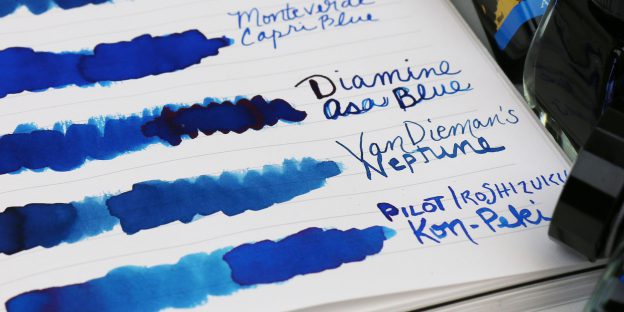 Monteverde
Capri Blue
Diamine
Asa Blue
VanDieman's
Neptune
PILOT/IROSHIZUKU
Kon-Peki